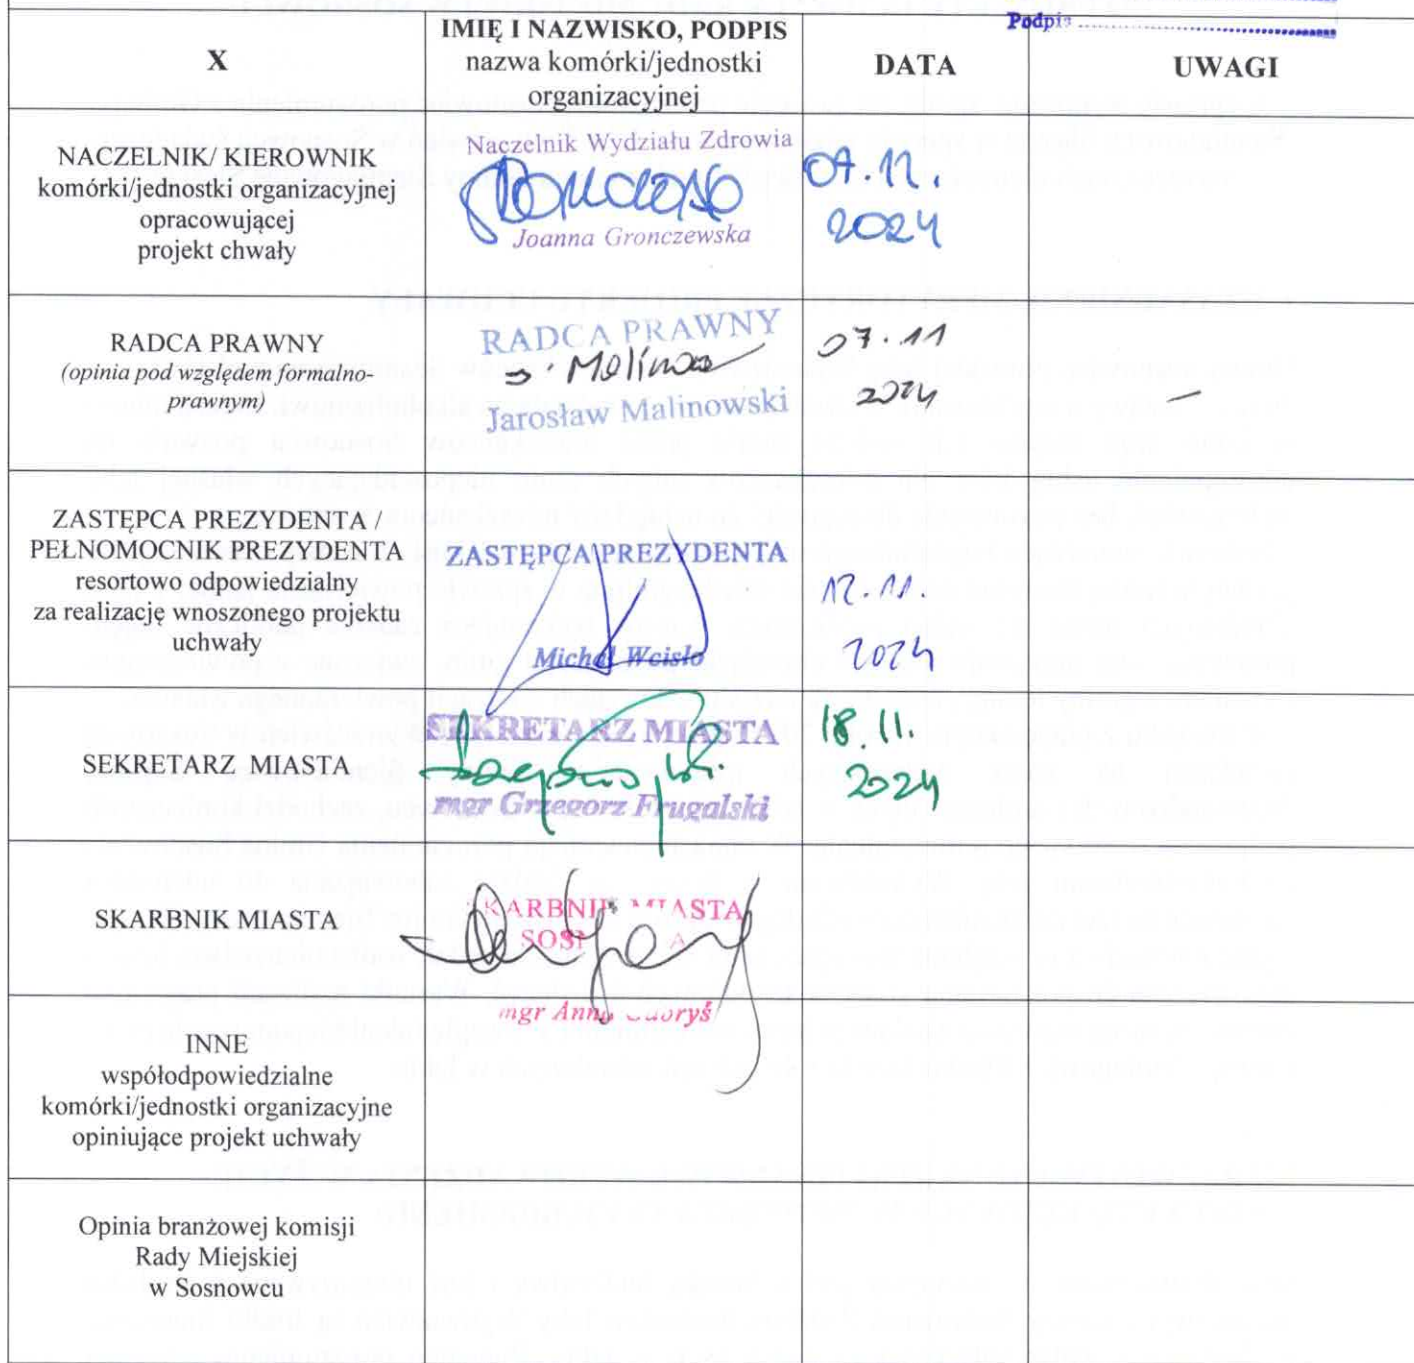 Podpis
X
IMIĘ I NAZWISKO, PODPIS
nazwa komórki/jednostki
organizacyjnej
DATA
UWAGI
NACZELNIK/ KIEROWNIK
komórki/jednostki organizacyjnej
opracowującej
projekt chwały
Naczelnik Wydziału Zdrowia
Joanna Gronczewska
07.11.
2024
RADCA PRAWNY
(opinia pod względem formalno-
prawnym)
RADCA PRAWNY
Jarosław Malinowski
07.11
2024
–
ZASTĘPCA PREZYDENTA /
PEŁNOMOCNIK PREZYDENTA
resortowo odpowiedzialny
za realizację wnoszonego projektu
uchwały
ZASTĘPCA PREZYDENTA
Michał Wcisło
12.11.
2024
SEKRETARZ MIASTA
SEKRETARZ MIASTA
mgr Grzegorz Frugalski
18.11.
2024
SKARBNIK MIASTA
SKARBNIK MIASTA
mgr Anna
INNE
współodpowiedzialne
komórki/jednostki organizacyjne
opiniujące projekt uchwały
Opinia branżowej komisji
Rady Miejskiej
w Sosnowcu